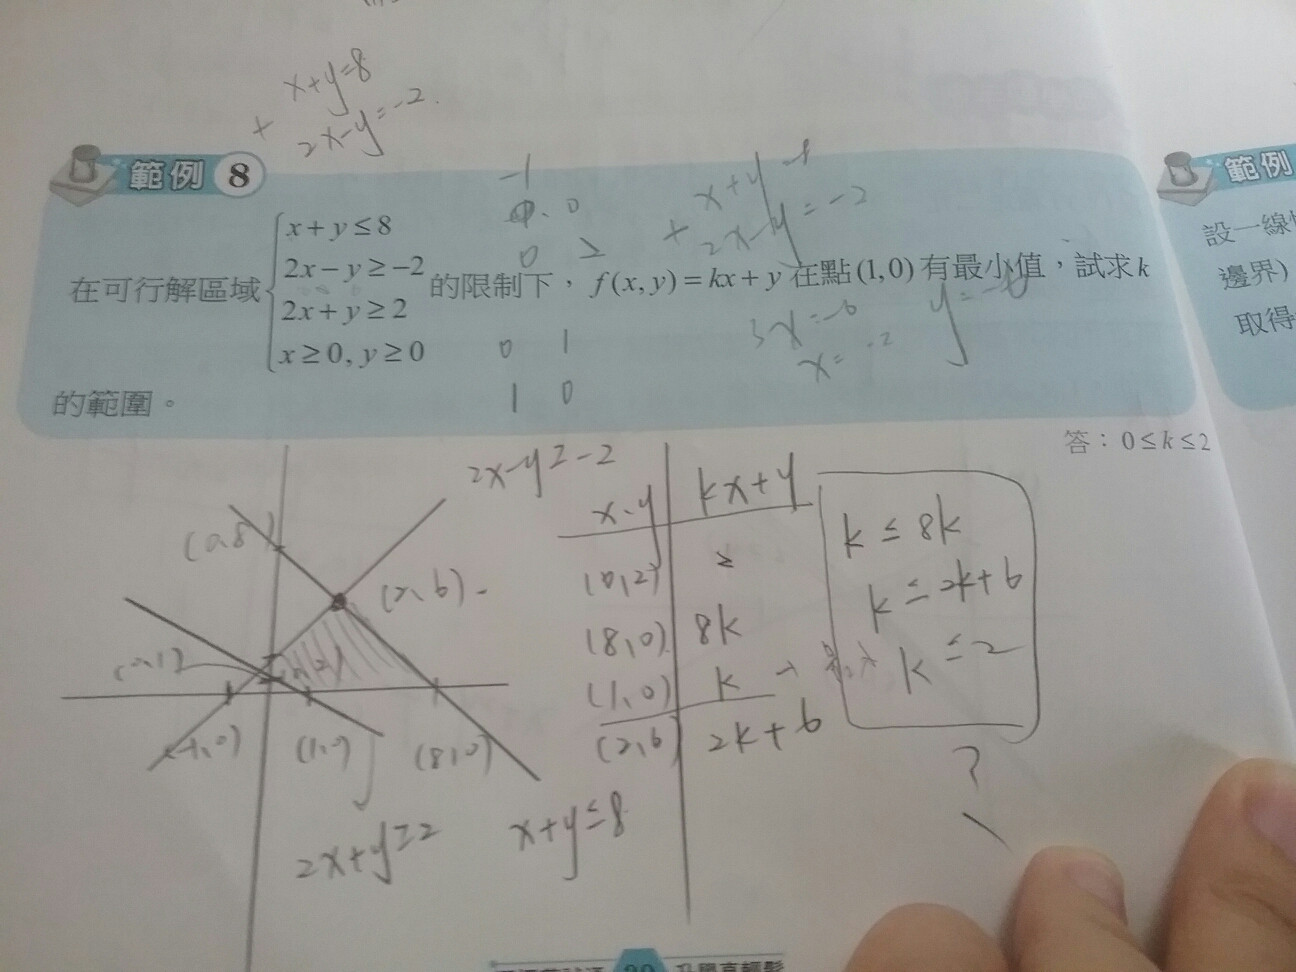 x+y=8
+ 2x-y=-2.
範例 8
範例
x + y ≤ 8
2x − y ≥ −2
2x + y ≥ 2
x ≥ 0, y ≥ 0
在可行解區域 的限制下，f(x, y) = kx + y 在點(1,0)有最小值，試求k
的範圍。
-1
0
0 2
0 1
1 0
x+y
+ 2x-y=-2
3x=-6
x=-2
設一線
邊界)
取得
答：0 ≤ k ≤ 2
2x-y=-2
(0,8)
(2,6)
(-1,0)
(1,0)
(8,0)
2x+y≥2
x+y≤8
x、y kx+y
(0,2) 2
(8,0) 8k
(1,0) k →
(2,6) 2k+6
k ≤ 8k
k ≤ 2k+6
k ≤ 2
?